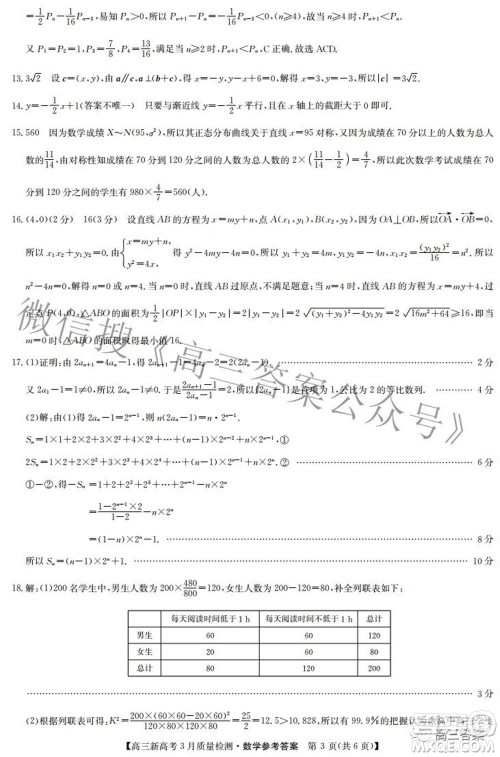 =1/2 P_n − 1/16 P_{n-3}, 易知 P_n>0, 所以 P_{n+1}−P_n=−1/16 P_{n-3}<0,(n≥4), 所以当 n≥4 时, P_{n+1}<P_n.
又 P_1=P_2=1, P_3=7/8, P_4=13/16, 满足当 n≥2 时, P_{n+1}<P_n, C 正确. 故选 ACD.
13. 3√2 设 c=(x,y), 由 a∥c, a⊥(b+c), 得 x−y=0, −x−y+6=0, 解得 x=3,y=3, 所以|c|=3√2.
14. y=−1/2 x+1(答案不唯一) 只要与渐近线 y=−1/2 x 平行, 且在 x 轴上的截距大于 0 即可.
15. 560 因为数学成绩 X~N(95,σ²), 所以其正态分布曲线关于直线 x=95 对称, 又因为成绩在 70 分以上的人数为总人
数的 11/14, 由对称性知成绩在 70 分到 120 分之间的人数为总人数的 2×(11/14−1/2)=4/7, 所以此次数学考试成绩在 70
分到 120 分之间的学生有 980×4/7=560(人).
16. (4,0)(2 分) 16(3 分) 设直线 AB 的方程为 x=my+n, 点 A(x_1,y_1), B(x_2,y_2), 因为 OA⊥OB, 所以 OA·OB=0,
所以 x_1x_2+y_1y_2=0. 由{x=my+n, y²=4x, 得 y²−4my−4n=0, 所以 y_1+y_2=4m, y_1y_2=−4n, x_1x_2=(y_1y_2)²/16=n². 所以
n²−4n=0, 解得 n=0 或 n=4. 当 n=0 时, 直线 AB 过原点, 不满足题意; 当 n=4 时, 直线 AB 的方程为 x=my+4, 过
定点 P(4,0), △ABO 的面积为 1/2|OP|×|y_1−y_2|=2|y_1−y_2|=2√((y_1+y_2)²−4y_1y_2)=2√(16m²+64)≥16, 即当
m=0 时, △ABO 的面积取得最小值 16.
17. (1)证明: 由 2a_{n+1}=4a_n−1, 得 2a_{n+1}−1=4a_n−2=2(2a_n−1). 2 分
又 2a_1−1=1≠0, 所以 2a_n−1≠0. 于是 (2a_{n+1}−1)/(2a_n−1)=2, 所以{2a_n−1}是首项为 1, 公比为 2 的等比数列. 4 分
(2)解: 由(1)得 2a_n−1=2^{n-1}, 则 n(4a_n−2)=n×2^n,
S_n=1×2+2×2²+3×2³+…+(n−1)×2^{n-1}+n×2^n ①
2S_n=1×2²+2×2³+3×2⁴+…+(n−1)×2^n+n×2^{n+1} ② 6 分
①−②, 得−S_n=1+2+2²+2³+…+2^{n-1}−n×2^n
=(1−2^{n-1}×2)/(1−2)−n×2^n
=(1−n)×2^n−1. 8 分
所以 S_n=(n−1)×2^n+1. 10 分
18. 解: (1)200 名学生中, 男生人数为 200×480/800=120, 女生人数为 200−120=80, 补全列联表如下:
每天阅读时间低于 1 h 每天阅读时间不低于 1 h 总计
男生 60 60 120
女生 20 60 80
总计 80 120 200
3 分
(2)根据列联表可得: K²=200×(60×60−20×60)²/(120×80×120×80)=25/2=12.5>10.828, 所以有 99.9%
【高三新高考 3 月质量检测·数学参考答案 第 3 页(共 6 页)】
微信搜《高三答案公众号》